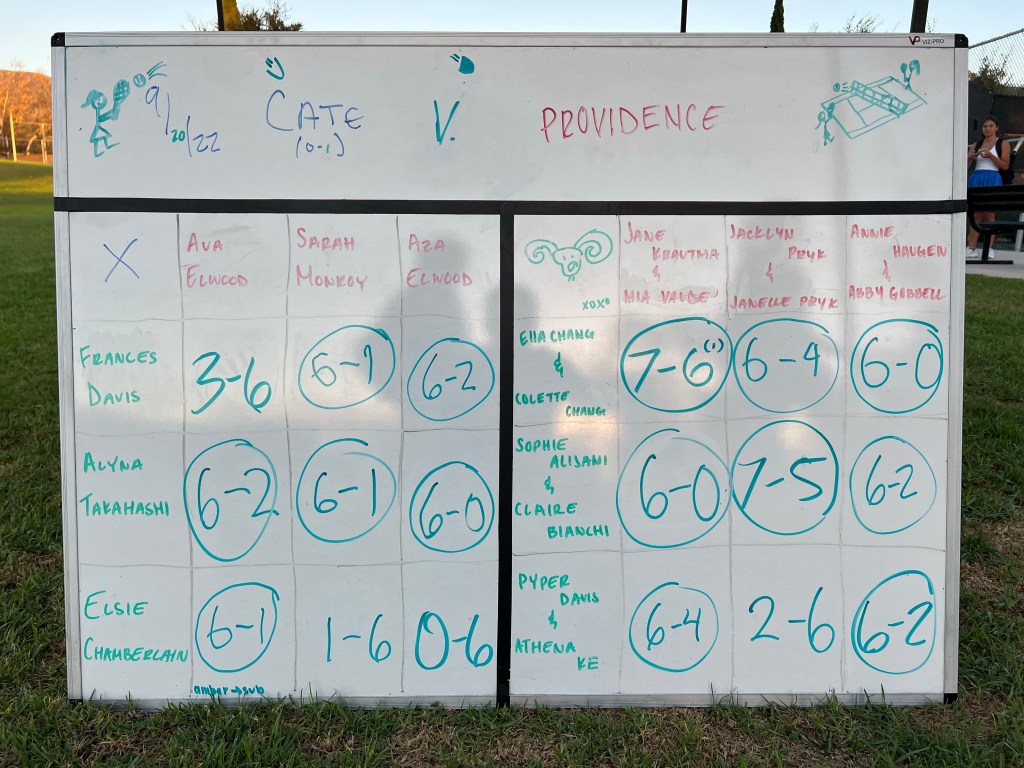 VIZ-PRO
9/20/22 CATE V. PROVIDENCE
(0-1)
X
AVA
ELWOOD
SARAH
MONROY
AZA
ELWOOD
FRANCES
DAVIS
3-6
6-1
6-2
ALYNA
TAKAHASHI
6-2
6-1
6-0
ELSIE
CHAMBERLAIN
6-1
1-6
0-6
amber→sub
XOXO
JANE
KRAUTMA
&
MIA VAUDE
JACKLYN
PRYK
&
JANELLE PRYK
ANNIE
HAUGEN
&
ABBY GOBBELL
ELLA CHANG
&
COLETTE
CHANG
7-6(1)
6-4
6-0
SOPHIE
ALISANI
&
CLAIRE
BIANCHI
6-0
7-5
6-2
PYPER
DAVIS
&
ATHENA
KE
6-4
2-6
6-2